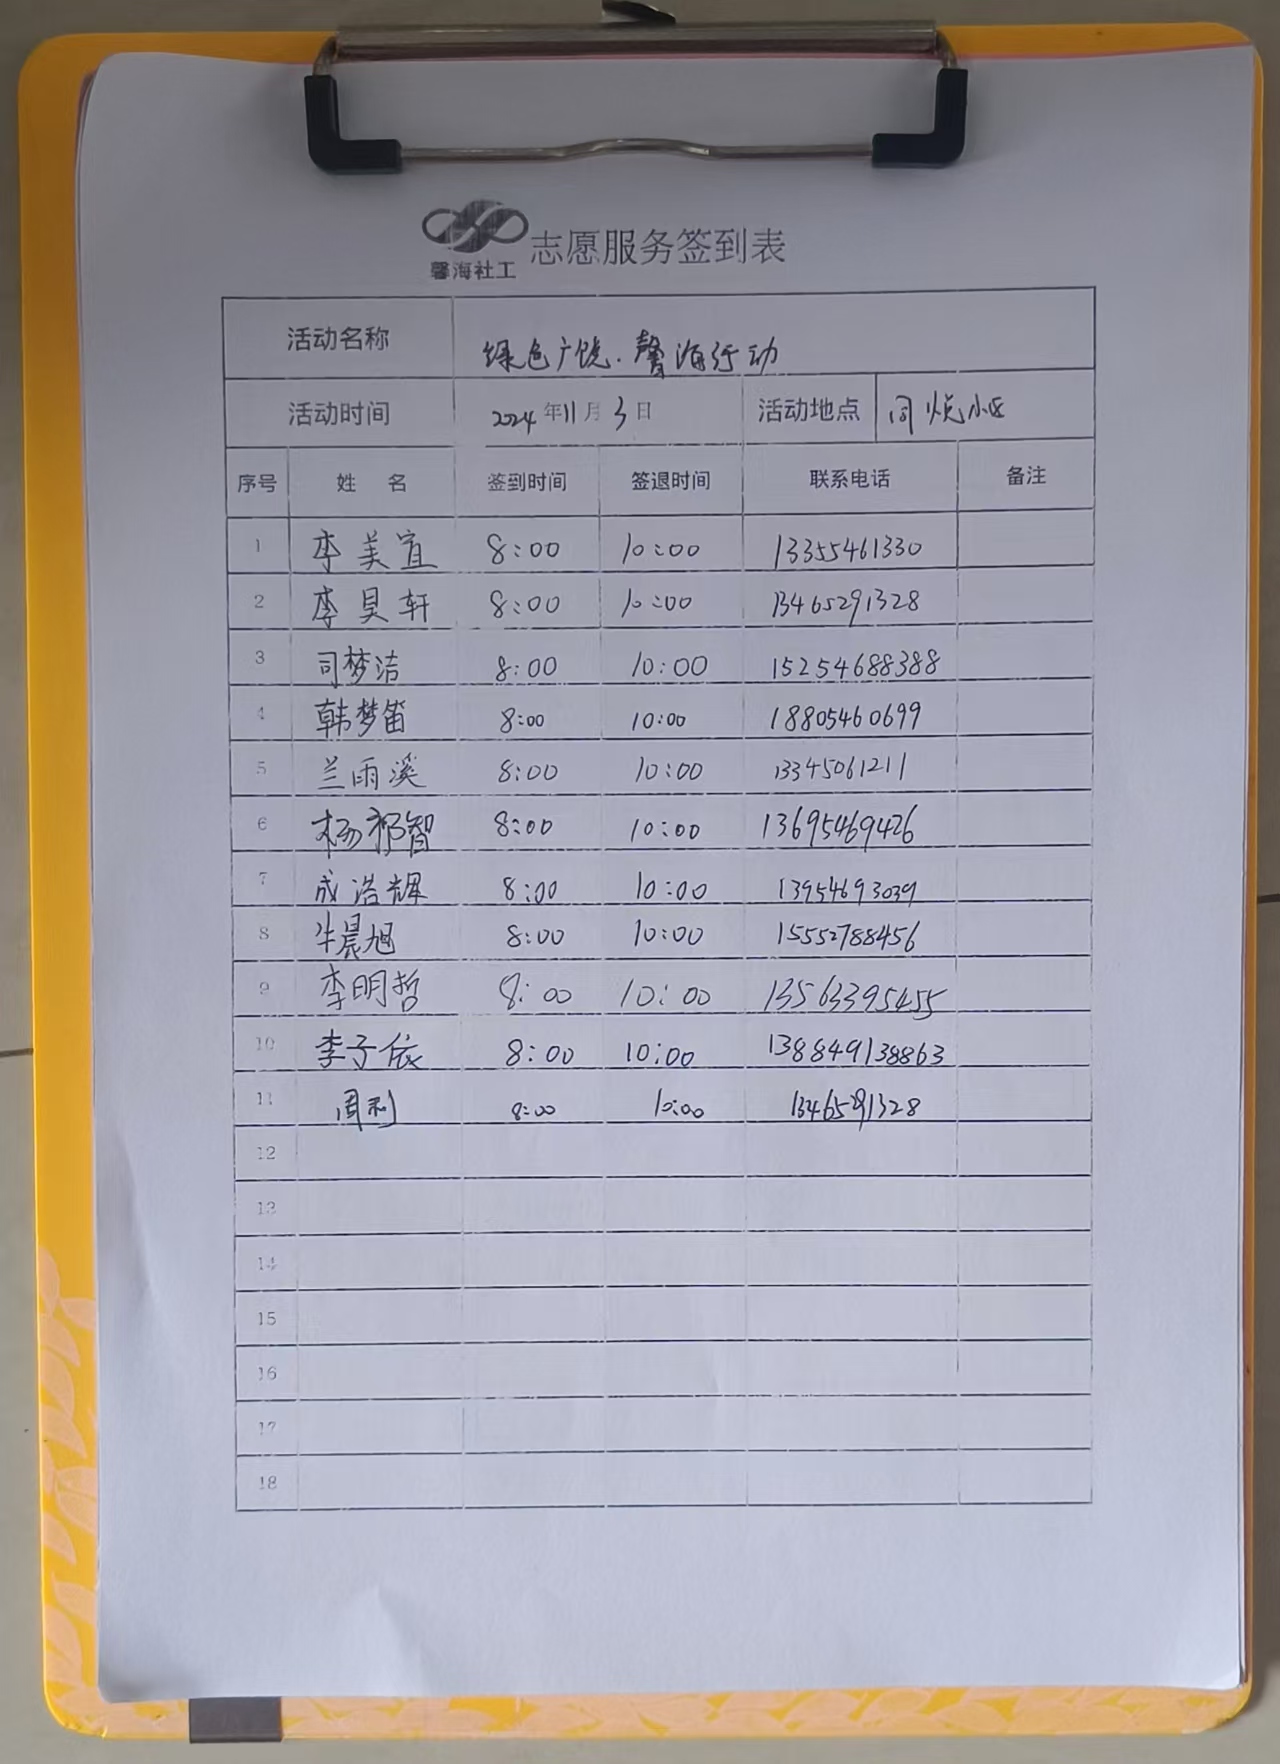 馨海社工 志愿服务签到表
活动名称 绿色广饶.馨海行动
活动时间 2024年11月3日 活动地点 同悦小区
序号 姓 名 签到时间 签退时间 联系电话 备注
1 李美宜 8:00 10:00 13355461330
2 李昊轩 8:00 10:00 13465291328
3 司梦洁 8:00 10:00 15254688388
4 韩梦笛 8:00 10:00 18805460699
5 兰雨溪 8:00 10:00 13345061211
6 杨祁智 8:00 10:00 13695469426
7 成浩辉 8:00 10:00 13954693039
8 牛晨旭 8:00 10:00 15552788456
9 李明哲 8:00 10:00 13563395455
10 李子依 8:00 10:00 138849138863
11 周利 8:00 10:00 13465291328
12
13
14
15
16
17
18